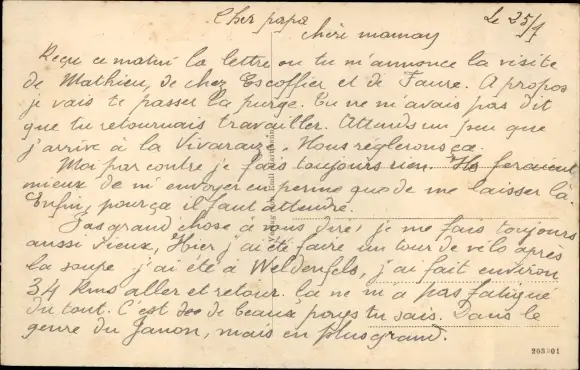 Cher papa
Le 25/9
chéri maman
Reçu ce matin la lettre ou tu m'annonce la visite
de Mathieu, de chez Escoffier et de Faure. A propos
je vais te passer la purge. Tu ne m'avais pas dit
que tu retournais travailler. Attends un peu que
j'arrive à la Vivaraize. Nous réglerons ça.
Moi par contre je fais toujours rien. Ils feraient
mieux de m'envoyer en perme que de me laisser là.
Enfin, pour ça il faut attendre.
Pas grand chose à vous dire, je me fais toujours
aussi vieux, Hier j'ai été faire un tour de vélo après
la soupe j'ai été à Weldenfels, j'ai fait environ
34 kms aller et retour. Ça ne m'a pas fatigué
du tout. C'est des de beaux pays tu sais. Dans le
genre du Janon, mais en plus grand.
203 01